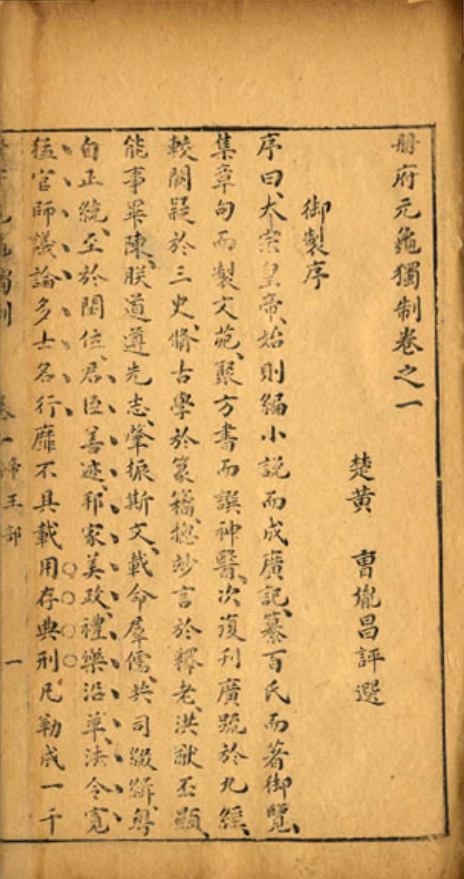 冊府元龜獨制卷之一
楚黄 曺胤昌評選
御製序
序曰太宗皇帝始則編小説而成廣記纂百氏而著御覽
集章句而製文苑聚方書而譔神醫次復刊廣䟽於九經
較闕疑於三史脩古學於篆籀摠妙言於釋老洪猷丕顯
能事畢陳朕遵先志肇振斯文載命羣儒共司綴緝粤
自正統至於閏位君臣善迹邦家美政禮樂沿革法令寛
猛官師議論多士名行靡不具載用存典刑凡勒成一千
帝王部
一